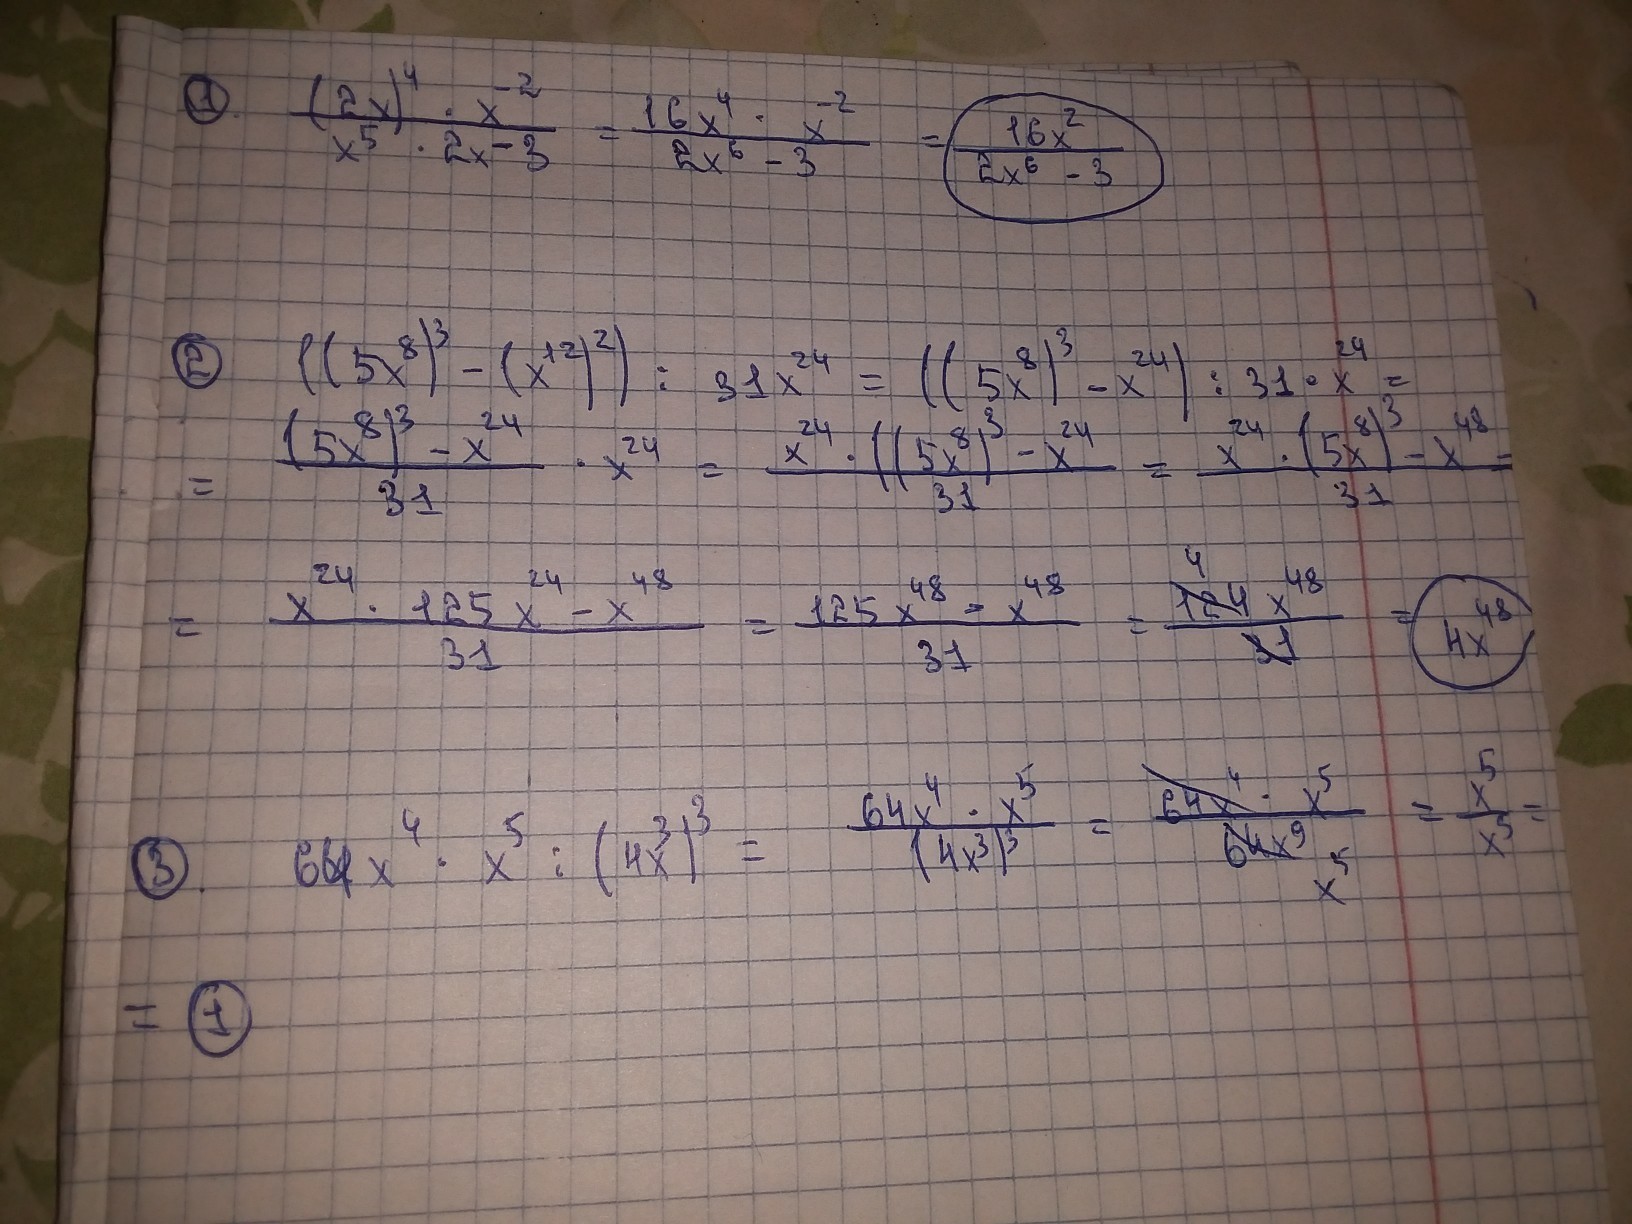 ① (2x)⁴ · x⁻² / x⁵ · 2x - 3 = 16x⁴ · x⁻² / 2x⁶ - 3 = 16x² / 2x⁶ - 3
② ((5x⁸)³ - (x¹²)²) : 31x²⁴ = ((5x⁸)³ - x²⁴) : 31 · x²⁴ =
= (5x⁸)³ - x²⁴ / 31 · x²⁴ = x²⁴ · ((5x⁸)³ - x²⁴ / 31 = x²⁴ · (5x⁸)³ - x⁴⁸ / 31 =
= x²⁴ · 125x²⁴ - x⁴⁸ / 31 = 125x⁴⁸ - x⁴⁸ / 31 = 4 124x⁴⁸ / 31 = 4x⁴⁸
③. 64x⁴ · x⁵ : (4x³)³ = 64x⁴ · x⁵ / (4x³)³ = 64x⁴ · x⁵ / 64x⁹ x⁵ = x⁵ / x⁵ =
= 1